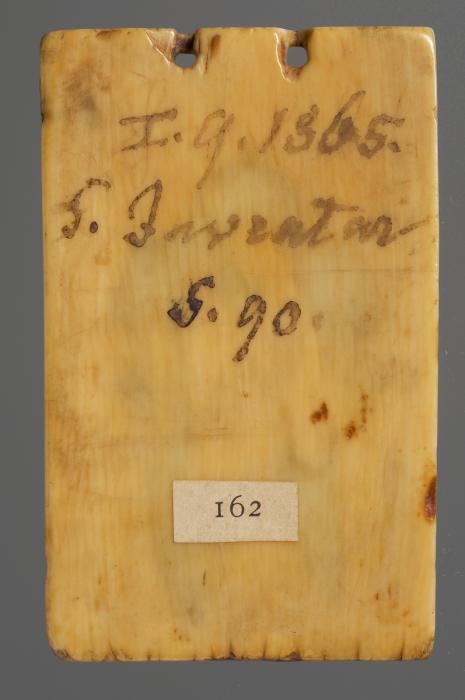 I. 9. 1365.
S. Inventar
S. 90.
162